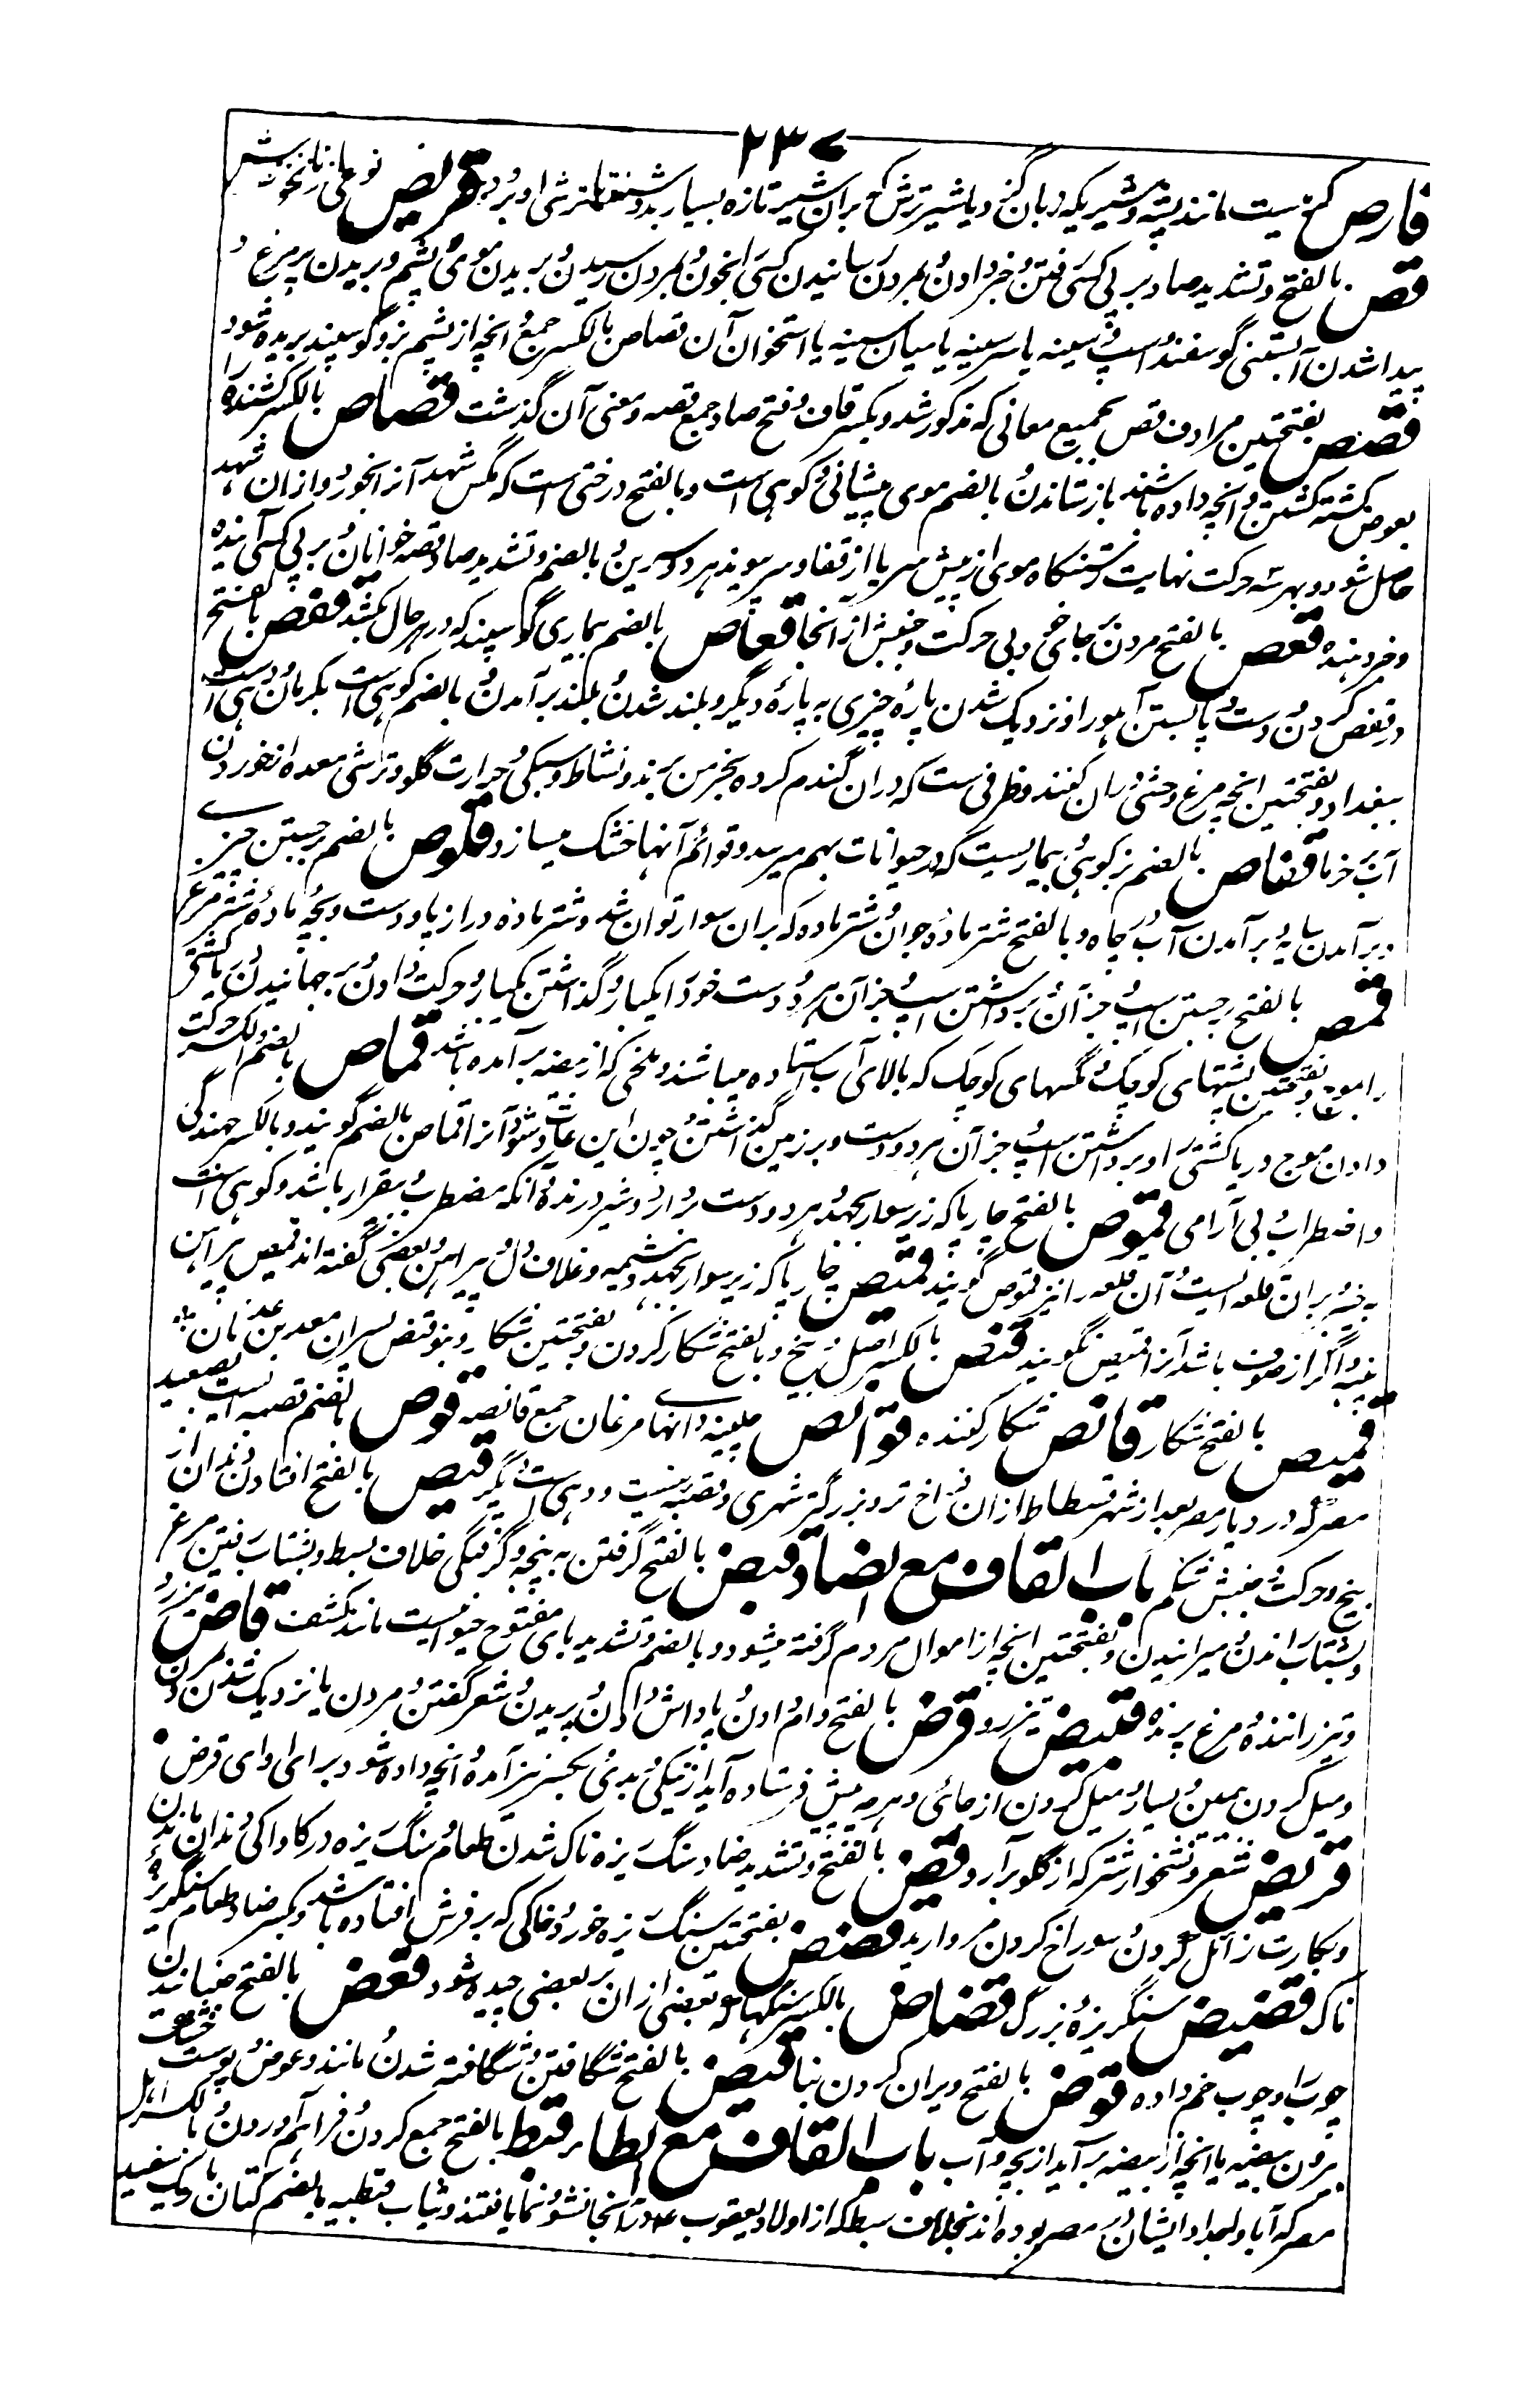 ٢٣٧
قارص کرمیست مانند پشه و شیریکه زبان گزد یا شیر ترش که بران شیر تازه بسیار بدوشند تا ترشی او برود قریص نوعی از نانخورش
قص بالفتح و تشدید صاد بر پی کسی رفتن و خبر دادن و بمردن رسانیدن کسی را چون بمردن رسیدن و بریدن موی و پشم و بریدن پر مرغ و
پیدا شدن آبستنی گوسفند و اسپ و سینه یا سر سینه یا میان سینه یا استخوان آن قصاص بالکسر جمع و آنچه از پشم بز و گوسپند بریده شود
قصص بفتحتین مرادف قص بجمیع معانی که مذکور شد و بکسر قاف و فتح صاد جمع قصه و معنی آن گذشت قصاص بالکسر کشنده را
بعوض کشته کشتن و آنچه داده باشند باز ستاندن و بالضم موی پیشانی و کوهی است و بالفتح درختی است که مگس شهد آنرا خورد و ازان شهد
حاصل شود و بهر سه حرکت نهایت رستنگاه موی از پیش سر یا از قفا و سر پیوند هر دو سرین و بالضم و تشدید صاد قصه خوانان و بر پی کسی آینده
و خبر دهنده قعص بالفتح مردن بر جای خود بی حرکت و جنبش از آنجا قعاص بالضم بیماری گوسپند که در هر حال بکشد قفص بالفتح
در قفص کردن و دست و پا بستن آهو را و نزدیک شدن پارهٔ چیزی به پارهٔ دیگر و بلند شدن و بلند بر آمدن و بالضم کوهی است بکرمان و دهی است
ببغداد و بفتحتین آنچه مرغ وحشی دران کنند و ظرفی ست که دران گندم کرده بخرمن برند و نشاط و سبکی و حرارت گلو و ترشی معده از خوردن
آب بر خرما قفاص بالضم بز کوهی و بیماریست که در حیوانات بهم میرسد و قوائم آنها خشک میسازد قلوص بالضم برجستن چیزے
و بر آمدن سایه و بر آمدن آب چاه و بالفتح شتر مادهٔ جوان و شتر ماده که بران سوار توان شد و شتر ماده دراز پا و دست و بچهٔ مادهٔ شتر مرغ
قمص بالفتح برجستن اسپ و جز آن و برداشتن اسپ و جز آن هر دو دست خود را یکبار و گذاشتن یکبار و حرکت دادن و بر جهانیدن دریا کشتی
را بموج و بفتحتین پشهای کوچک و مگسهای کوچک که بالای آب استاده میباشند و ملخی که از بیضه بر آمده باشد قماص بالضم و الکسر حرکت
دادن موج دریا کشتی را و برداشتن اسپ و جز آن هر دو دست و بر زمین گذاشتن و چون این عادت شود آنرا قماص بالضم گویند و بالکسر جهندگی
و اضطراب و بی آرامی قموص بالفتح چارپا که زیر سوار بجهد و هر دو دست بردارد و شیر درنده و آنکه مضطرب و بیقرار باشد و کوهی است
بخیبر بران قلعه ایست و آن قلعه را نیز قموص گویند قمیص چارپا که زیر سوار بجهد و مشیمه و غلاف دل و پیراهن و بعضی گفته اند قمیص پیراهن
پنبه و اگر از صوف باشد آنرا قمیص نگویند قنص بالکسر اصل و بیخ و بالفتح شکار کردن و بفتحتین شکار و بنو قنص پسران معد بن عدنان
قنیص بالفتح شکار قانص شکار کننده قوانص چینه دانها مرغان جمع قانصه قوص بالضم قصبه ایست بصعید
مصر که در دیار مصر بعد از شهر فسطاط ازان فراخ تر و بزرگتر شهری و قصبه نیست و دهی ست دیگر قیص بالفتح افتادن دندان از
بیخ و حرکت و جنبش شکم باب القاف مع الضاد قبض بالفتح گرفتن به پنجه و گرفتگی خلاف بسط و بشتاب رفتن مرغ
و بشتاب راندن و میرانیدن و بفتحتین آنچه از اموال مردم گرفته میشود و بالضم و تشدید بای مفتوح حیوانیست مانند کشف قابض تیز رو
و تیز راننده و مرغ پرنده قبیض تیز رو قرض بالفتح وام دادن و پاداش دادن و بریدن و شعر گفتن و مردن یا نزدیک شدن بمردن
و میل کردن بیمین و یسار و میل کردن از جائی و هر چه پیش فرستاده آید از نیکی و بدی و بکسر نیز آمده و آنچه داده شود برای ادای قرض
قریض شعر و نشخوار شتر که از گلو برآرد قض بالفتح و تشدید ضاد سنگ ریزه ناک شدن طعام و سنگ ریزه در کاواکی دندان ماندن
و بکارت زائل کردن و سوراخ کردن مروارید قضض بفتحتین سنگ ریزه خورد و خاکی که بر فرش افتاده باشد و بکسر ضاد طعام سنگریزه
ناک قضیض سنگریزهٔ بزرگ قضاض بالکسر سنگها که بعضی ازان بر بعضی چیده شود قعض بالفتح خمانیدن
چوب را و چوب خم داده قوض بالفتح ویران کردن بنا قیض بالفتح شگافتن و شگافته شدن و مانند و عوض و پوست خشک
برون بیضه یا آنچه از بیضه برآید از بچه و آب باب القاف مع الطاء قبط بالفتح جمع کردن و فراهم آوردن و بالکسر اهل
مصر که آبا و اجداد ایشان در مصر بوده اند بخلاف سبط که از اولاد یعقوب ع و در آنجا نشو و نما یافتند و ثیاب قبطیه بالضم کتان باریک سفید